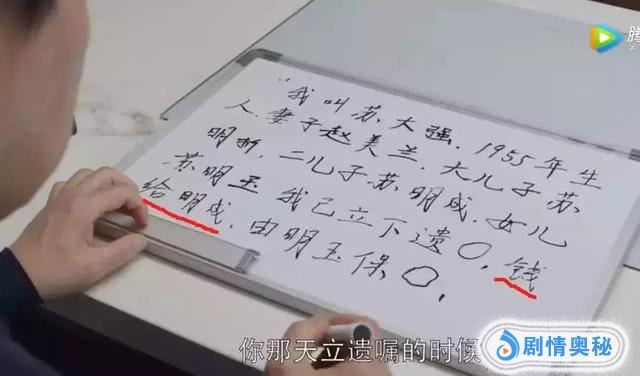 "我叫苏大强、1955年生
人.妻子赵美兰.大儿子苏
明哲,二儿子苏明成.女儿
苏明玉 我已立下遗〇,钱
给明成.由明玉保〇,
你那天立遗嘱的时候
剧情奥秘